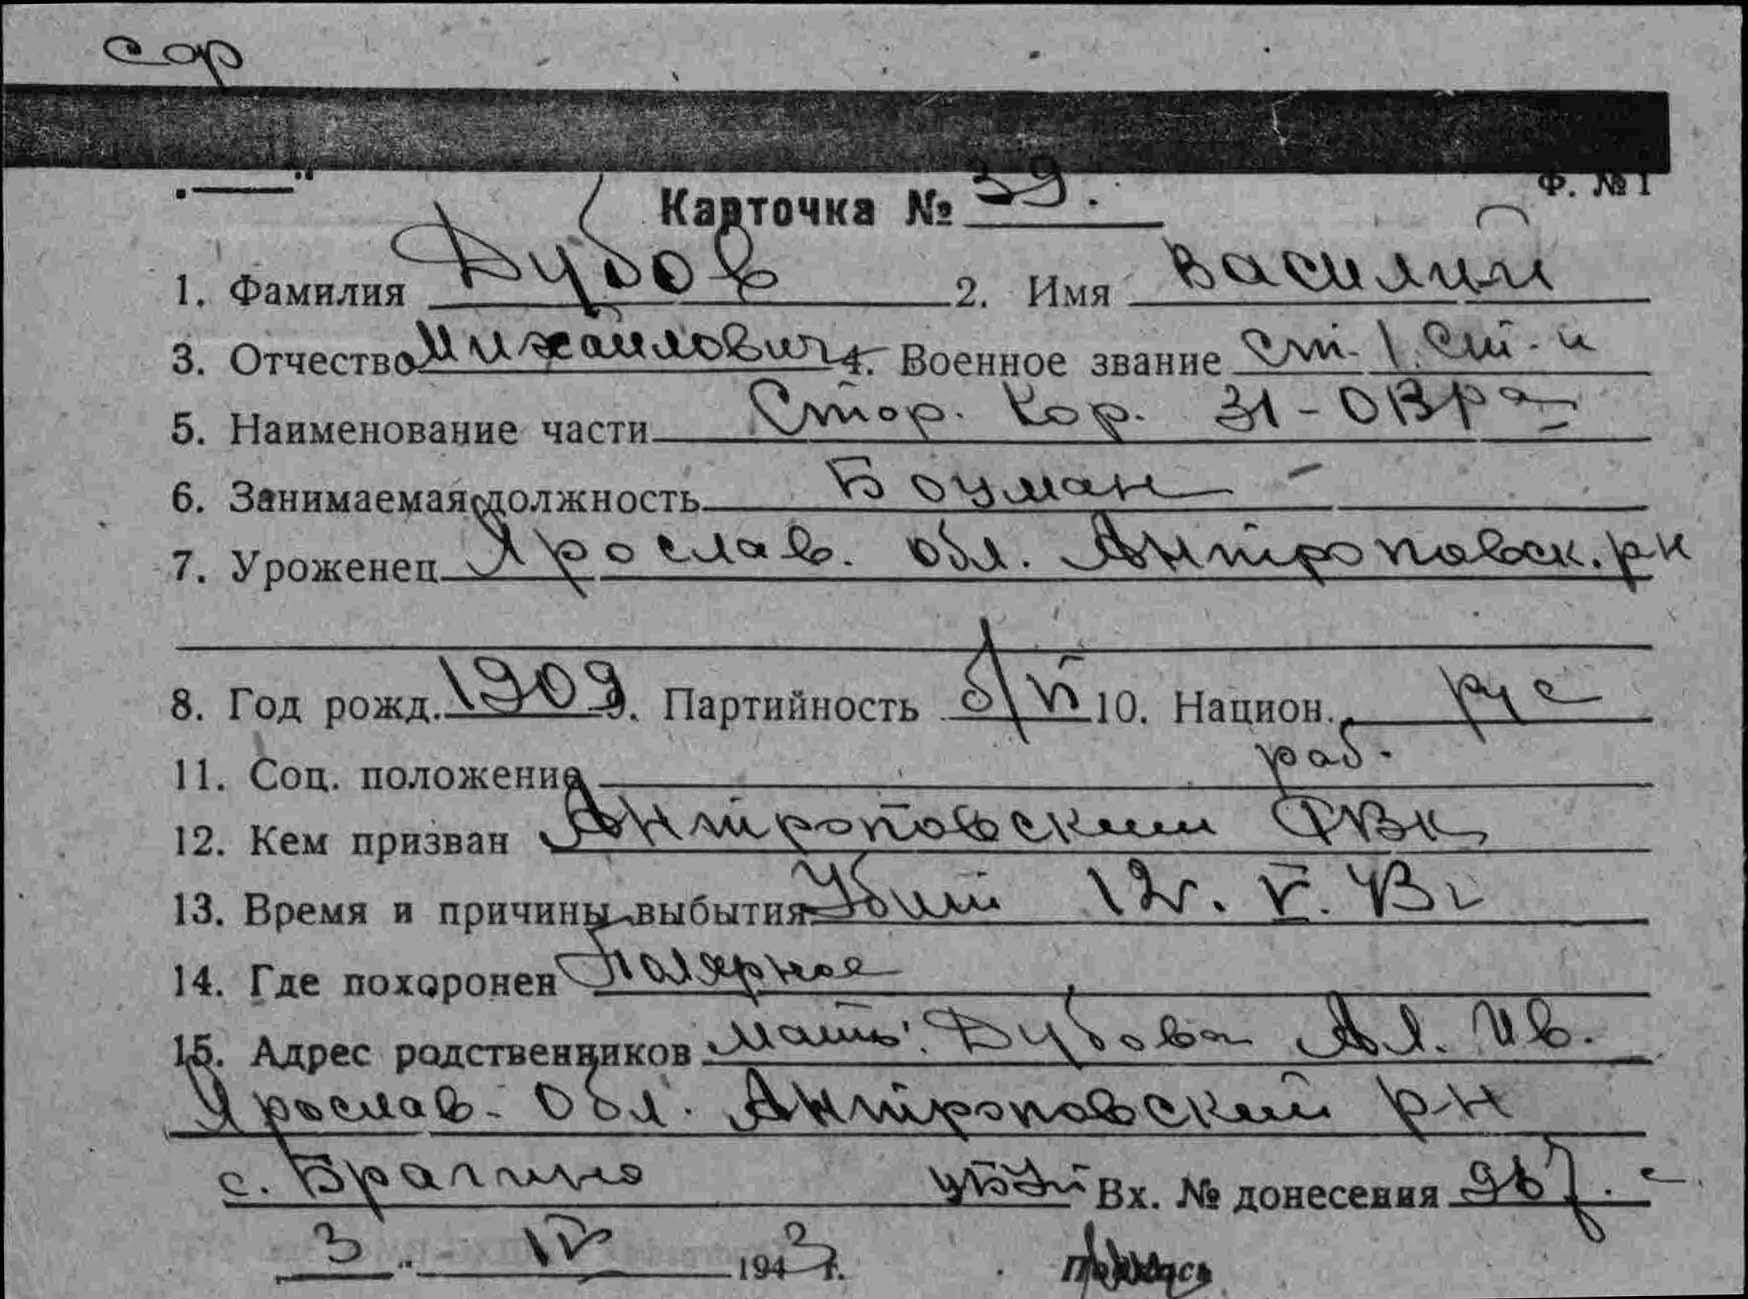 сор
Ф. № 1
Карточка № 39.
1. Фамилия Дубов 2. Имя Василий
3. Отчество Михайлович 4. Военное звание ст. 1 ст-и
5. Наименование части Стор. Кор. ОВРа
6. Занимаемая должность Боцман
7. Уроженец Ярослав. обл. Антроповск. р-н
8. Год рожд. 1909 9. Партийность б/п 10. Национ. рус
11. Соц. положение раб.
12. Кем призван Антроповским РВК
13. Время и причины выбытия Убит 12. V. 43 г
14. Где похоронен Полярное
15. Адрес родственников Мать: Дубова Ал. Ив.
Ярослав. Обл. Антроповский р-н
с. Брагино Вх. № донесения с
3 " 1943 г.